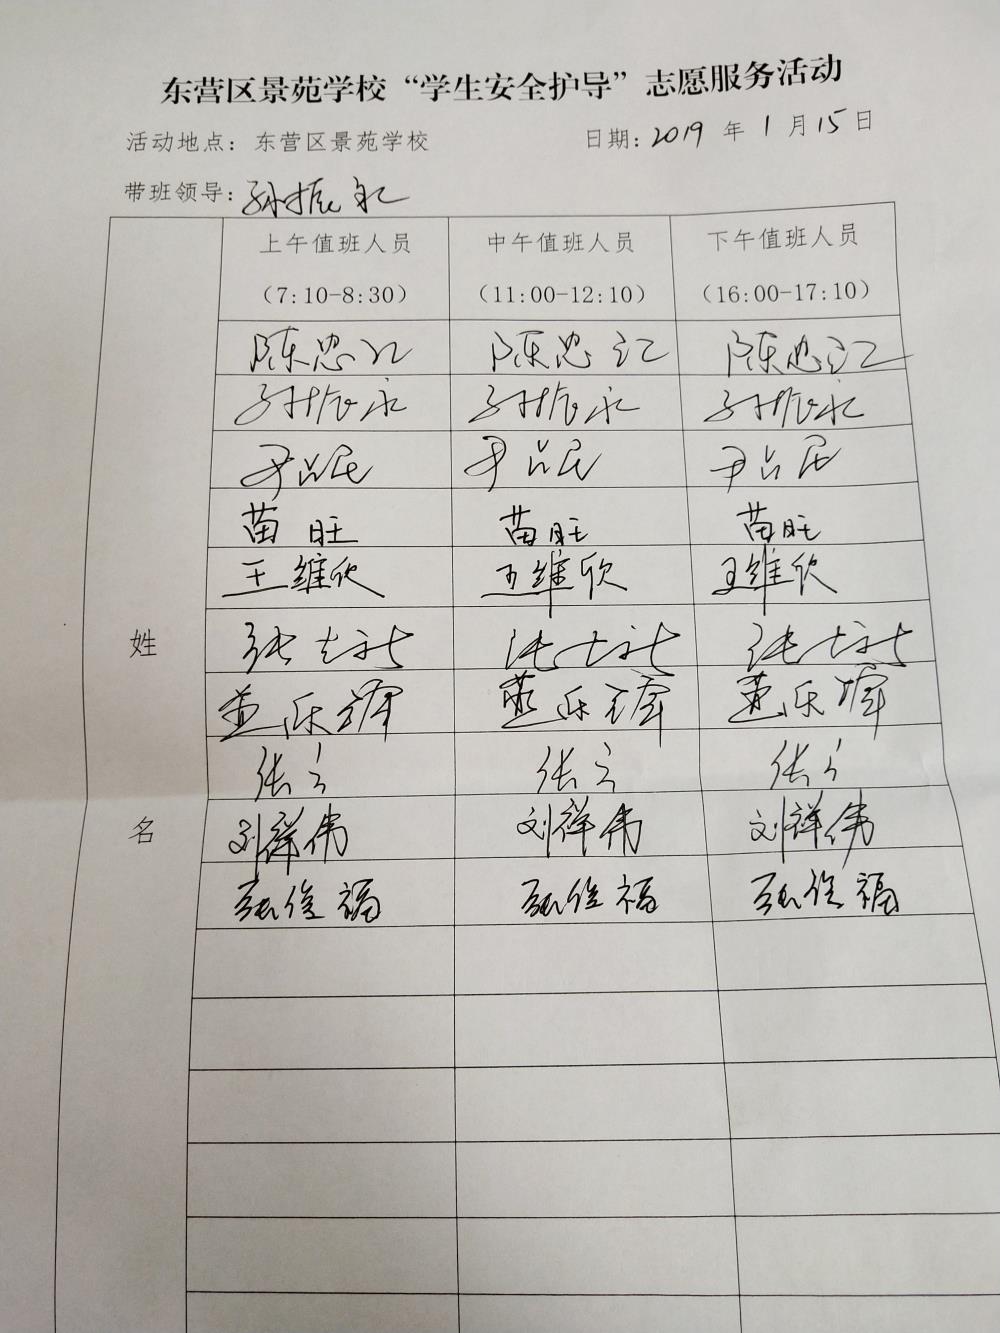 东营区景苑学校“学生安全护导”志愿服务活动
活动地点：东营区景苑学校 日期：2019年1月15日
带班领导：孙振永
上午值班人员 中午值班人员 下午值班人员
（7:10-8:30） （11:00-12:10） （16:00-17:10）
陈忠江 陈忠江 陈忠江
孙振永 孙振永 孙振永
尹吕民 尹吕民 尹吕民
苗旺 苗旺 苗旺
王维欣 王维欣 王维欣
姓
张 张 张
董乐 董乐 董乐
张 张 张
名
刘祥伟 刘祥伟 刘祥伟
张俊福 张俊福 张俊福